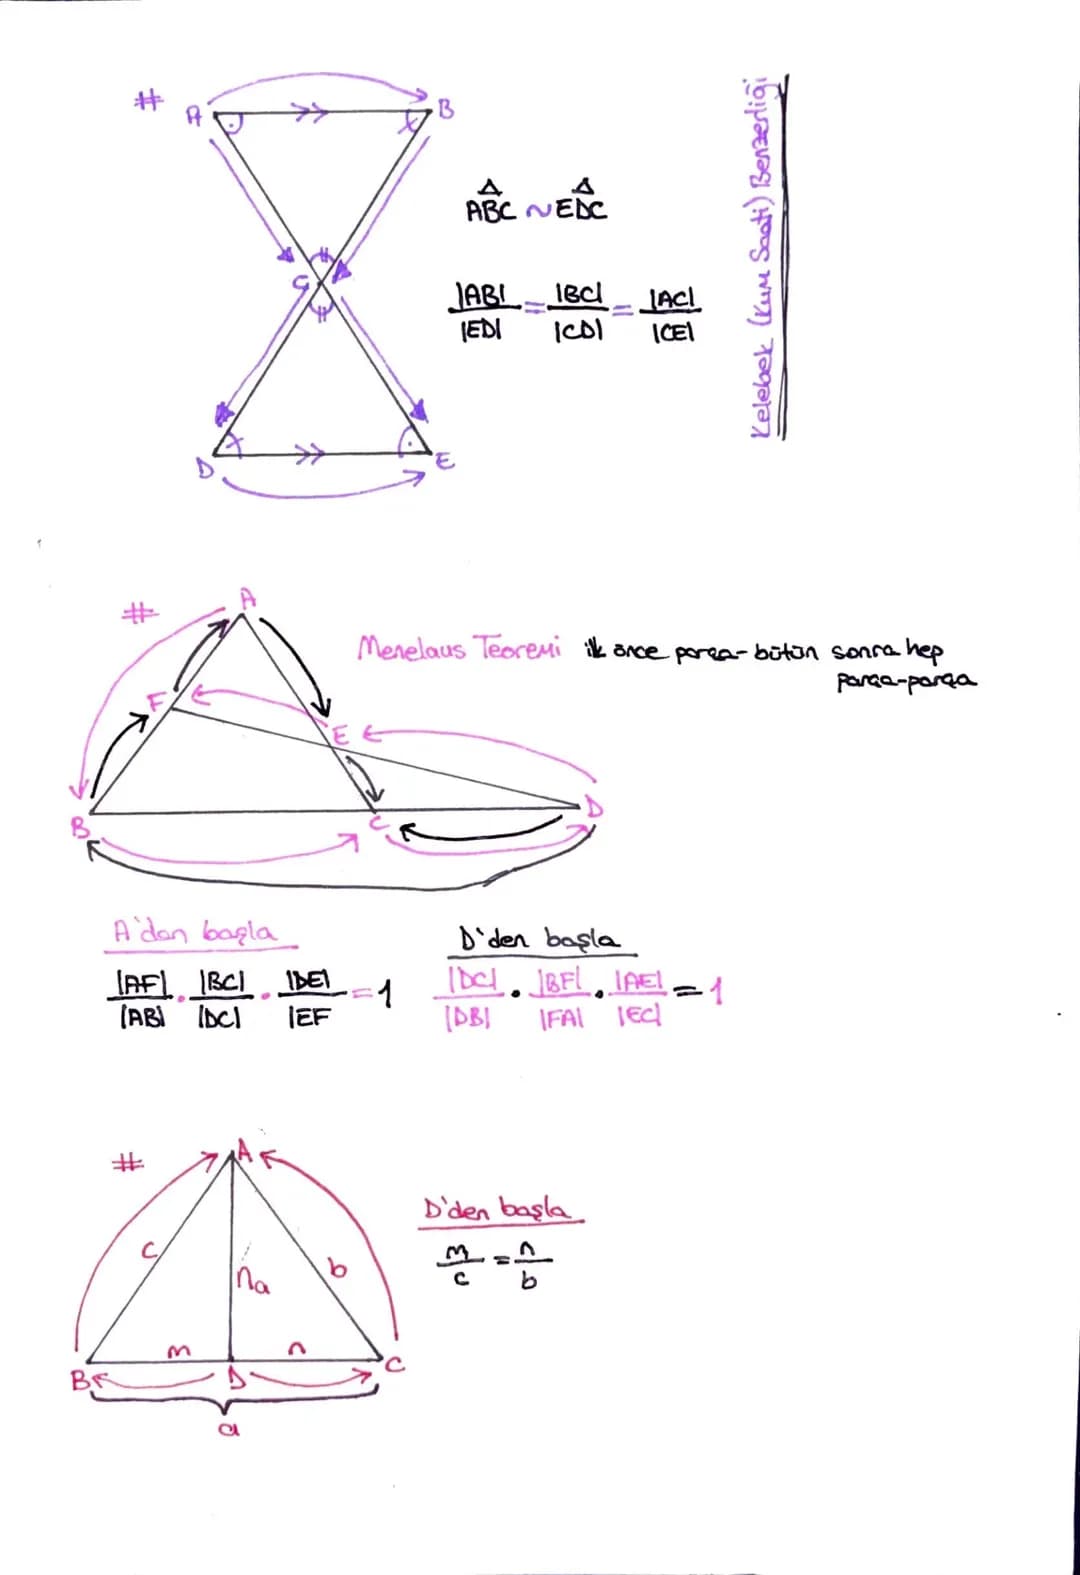 #
A
B
C
D
E
ABC ~ EDC
|AB| / |ED| = |BC| / |CD| = |AC| / |CE|
Kelebek (Kum Saati) Benzerliği
#
A
F
E
B
C
D
Menelaus Teoremi ilk önce parça-bütün sonra hep
parça-parça
A'dan başla
|AF| / |AB| . |BC| / |DC| . |DE| / |EF = 1
D'den başla
|DC| / |DB| . |BF| / |FA| . |AE| / |EC| = 1
#
A
c
b
na
m
n
B
D
C
a
D'den başla
m / c = n / b